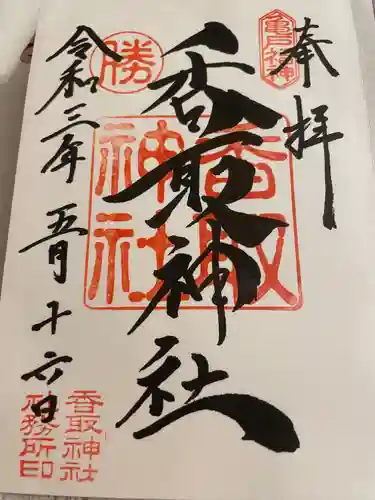 奉拝
亀戸神
香取神社
香取
神社
勝
令和三年五月十六日
香取神社
社務所印